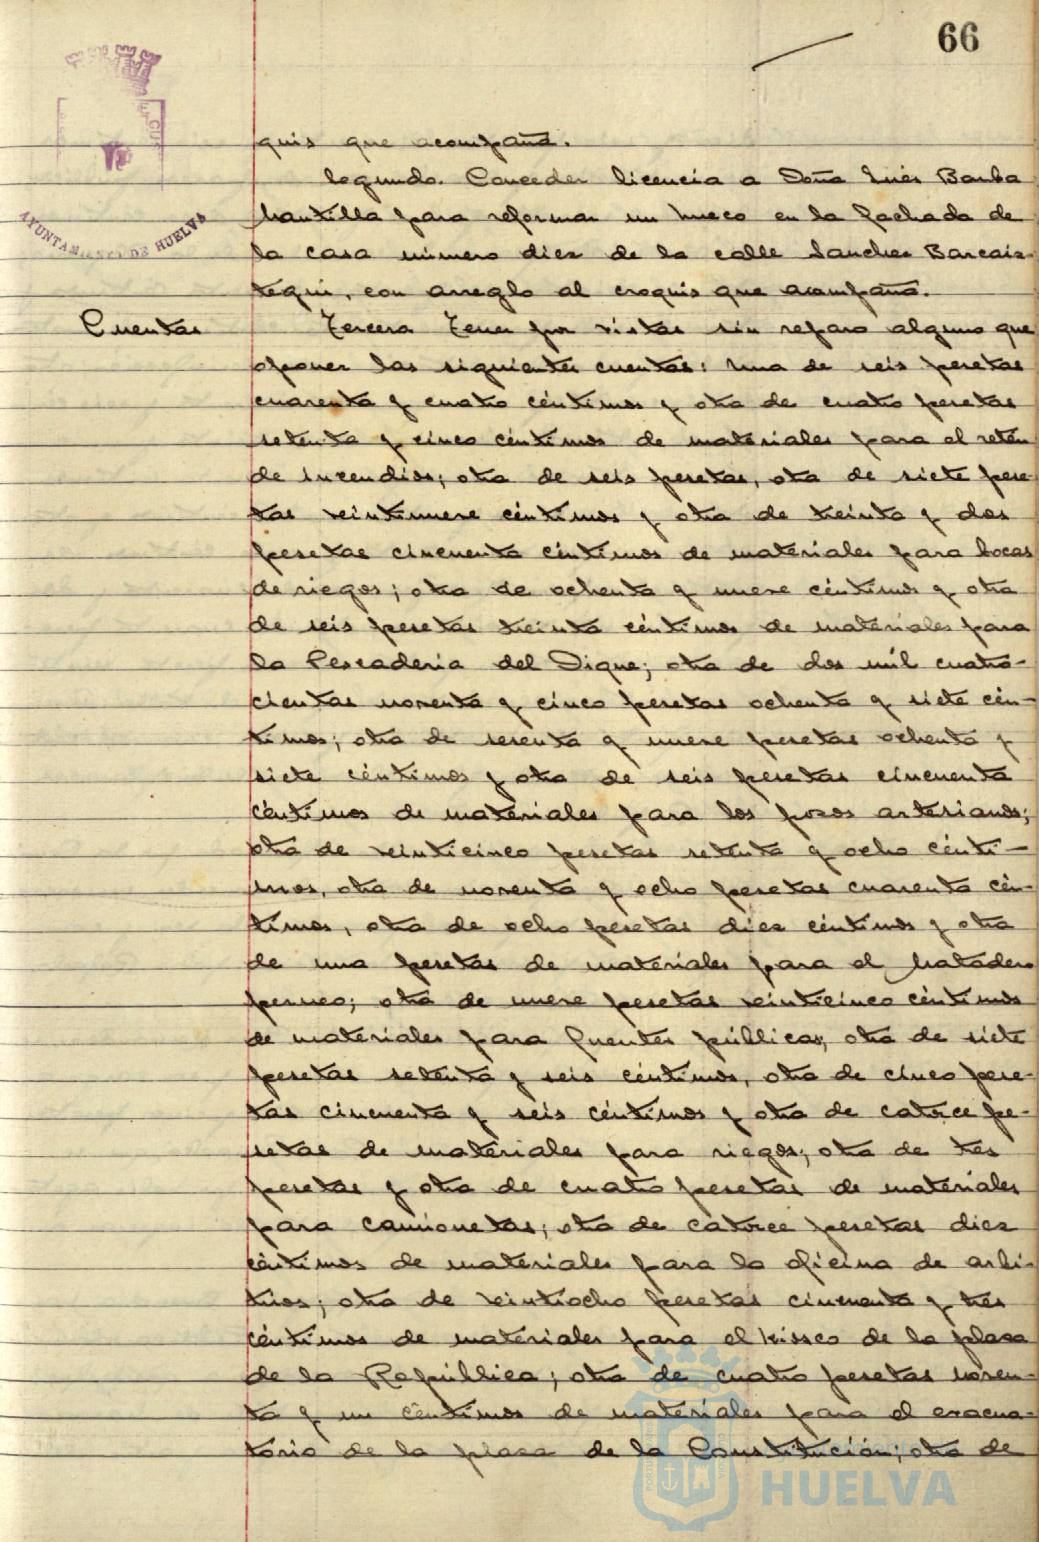 66
AYUNTAMIENTO DE HUELVA
quis que acompaña.
Segundo. Conceder licencia a Doña Inés Barba
Mantilla para reformar un hueco en la fachada de
la casa número diez de la calle Sanchez Barcaiz-
tegui, con arreglo al croquis que acompaña.
Cuentas
Tercero Tener por vistas sin reparo alguno que
oponer las siguientes cuentas: Una de seis pesetas
cuarenta y cuatro céntimos y otra de cuatro pesetas
setenta y cinco céntimos de materiales para el retén
de incendios; otra de seis pesetas, otra de siete pese-
tas veintinueve céntimos y otra de treinta y dos
pesetas cincuenta céntimos de materiales para bocas
de riegos; otra de ochenta y nueve céntimos y otra
de seis pesetas treinta céntimos de materiales para
la Pescaderia del Dique; otra de dos mil cuatro-
cientas noventa y cinco pesetas ochenta y siete cén-
timos; otra de sesenta y nueve pesetas ochenta y
siete céntimos y otra de seis pesetas cincuenta
céntimos de materiales para los pozos artesianos;
otra de veinticinco pesetas setenta y ocho cénti-
mos, otra de noventa y ocho pesetas cuarenta cén-
timos, otra de ocho pesetas diez céntimos y otra
de una pesetas de materiales para el Matadero
permeo; otra de nueve pesetas veinticinco céntimos
de materiales para fuentes públicas; otra de siete
pesetas setenta y seis céntimos, otra de cinco pese-
tas cincuenta y seis céntimos y otra de catorce pe-
setas de materiales para riegos; otra de tres
pesetas y otra de cuatro pesetas de materiales
para camionetas; otra de catorce pesetas diez
céntimos de materiales para la oficina de arbi-
trios; otra de veintiocho pesetas cincuenta y tres
céntimos de materiales para el kiosco de la plaza
de la República; otra de cuatro pesetas noven-
ta y un céntimos de materiales para el evacua-
torio de la plaza de la Constitución; otra de
HUELVA